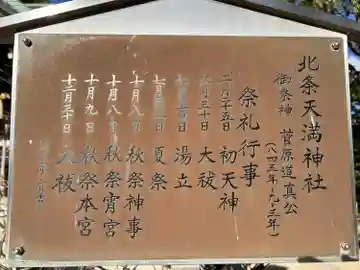 北条天満神社
御祭神 菅原道真公
(八四三年~九〇三年)
祭礼行事
二月二十五日 初天神
六月三十日 大祓
湯立
夏祭
十月八日 秋祭神事
十月八日 秋祭宵宮
十月九日 秋祭本宮
十二月三十日 大祓